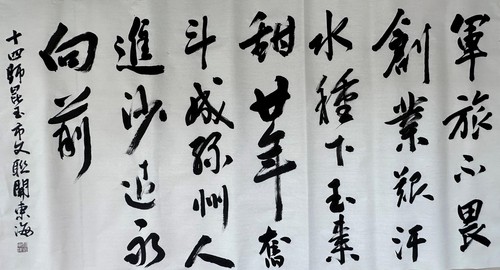 軍旅不畏
創業艱汗
水種下玉棗
甜廿年奮
斗成綠州人
進沙退永
向前
十四師昆玉市文聯東海